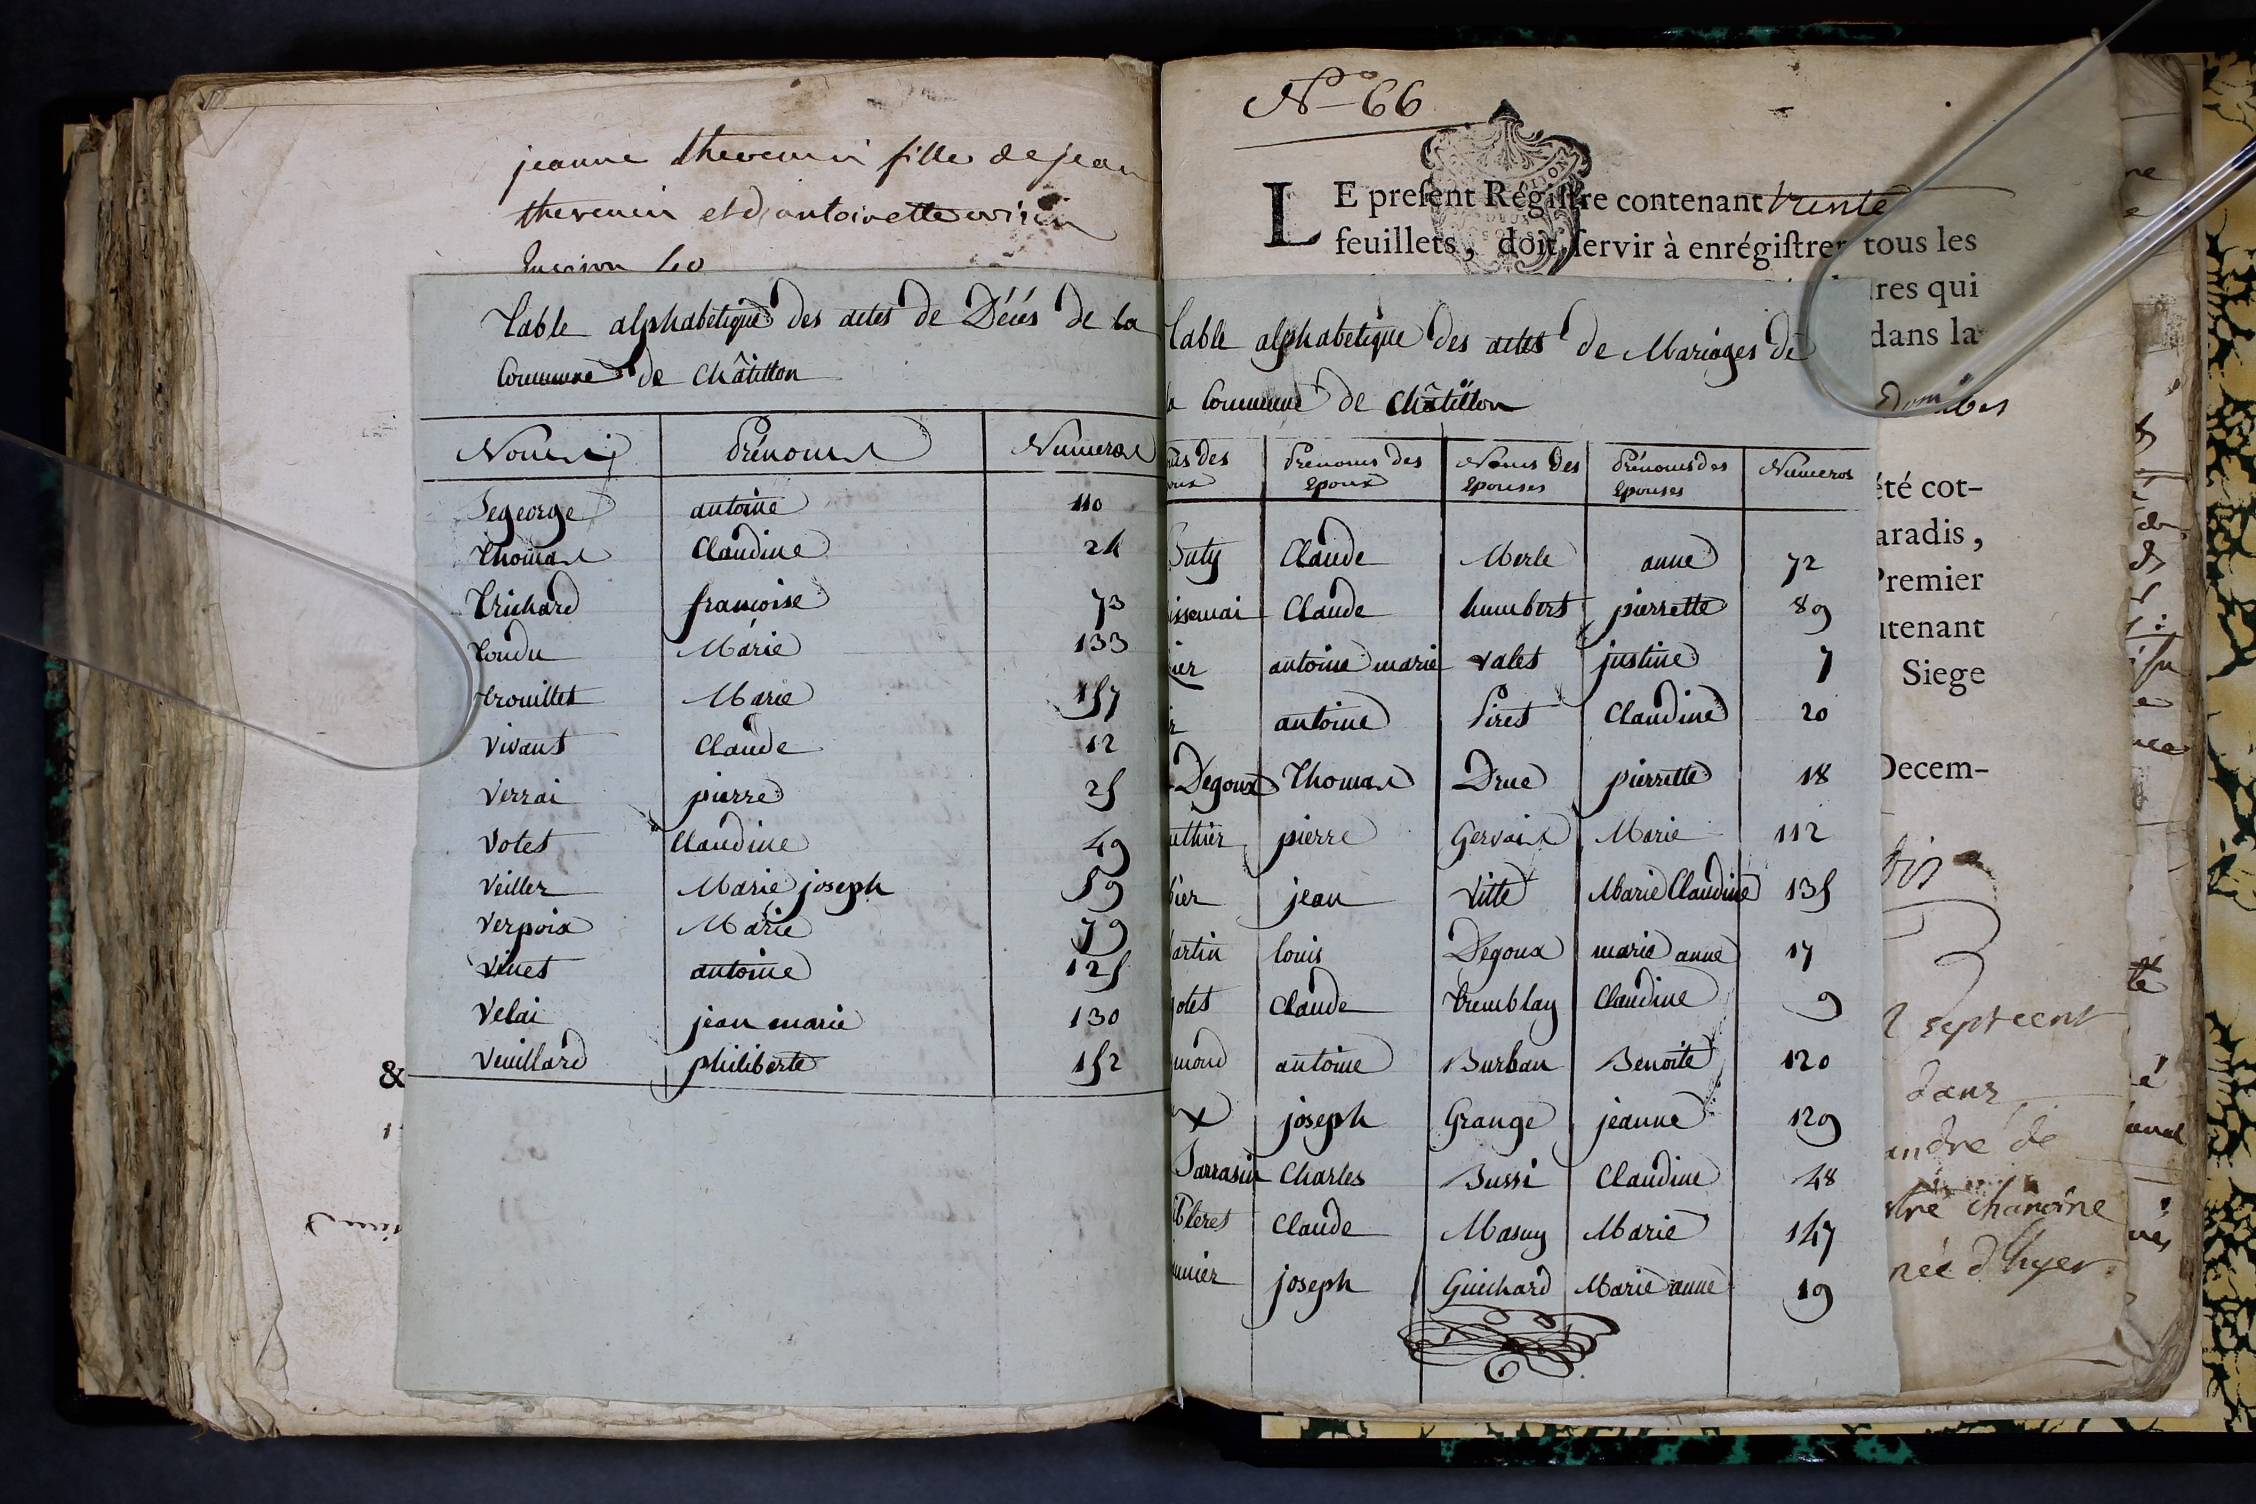 jeanne thevenin fille de jean
thevenin et d'antoinette
Table alphabetique des actes de Décés de la
Commune de Châtillon
Noms Prénoms Numeros
Segeorge antoine 110
Thomas Claudine 24
Trichard francoise 73
Tondu Marie 133
trouillet Marie 157
Vivant Claude 12
Verrai pierre 25
Votet Claudine 49
Veiller Marie joseph 59
Verpoix Marie 79
Vinet antoine 125
Velai jean marie 130
Veuillard philiberte 152
&
N° 66
LE present Régistre contenant trente
feuillets, doit servir à enrégistrer tous les
dres qui
dans la
Table alphabetique des actes de Mariages de
la Commune de Châtillon
Noms des Epoux Prenoms des Epoux Noms des Epouses Prénoms des Epouses Numeros
Buty Claude Merle anne 72
issemai Claude humbert pierrette 89
ier antoine marie valet justine 7
r antoine Piret Claudine 20
Degoux Thomas Drue pierrette 18
uthier pierre Gervais Marie 112
bier jean Vitte Marie Claudine 135
artin louis Degoux marie anne 17
otet Claude tremblay Claudine 9
mond antoine Burban Benoite 120
x joseph Grange jeanne 129
Sarrasin Charles Bussi Claudine 48
bleret Claude Masuy Marie 147
unier joseph Guichard Marie anne 19
été cot-
aradis,
Premier
utenant
Siege
Decem-
septcent
dans
andré de
chanoine
née d'hyer